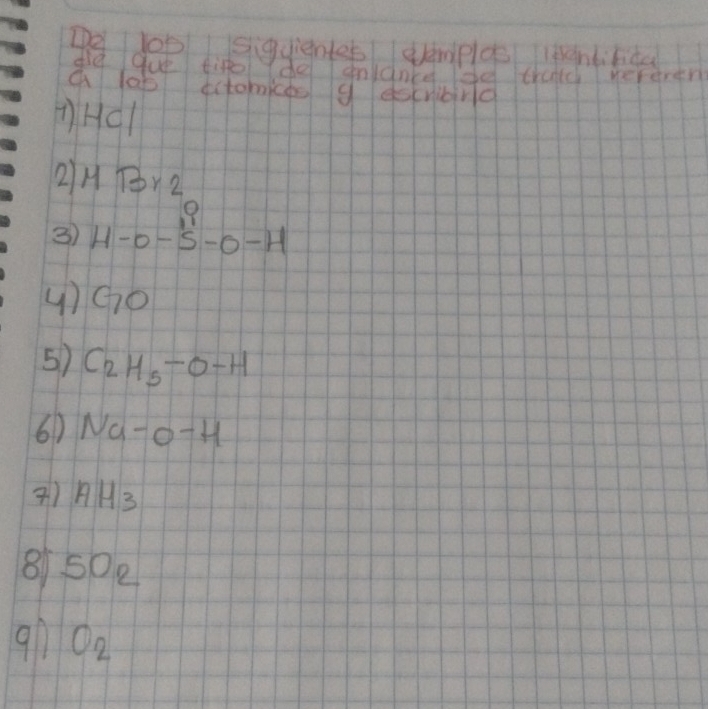 De los siguientes ejemplos identifica
de que tipo de enlance se trata referen
a los atomicos y escribirlo
1) HCl
2) H Br2
O
3) H-O-S-O-H
4) GO
5) C2H5-O-H
6) Na-O-H
7) AH3
8) SO2
9) O2